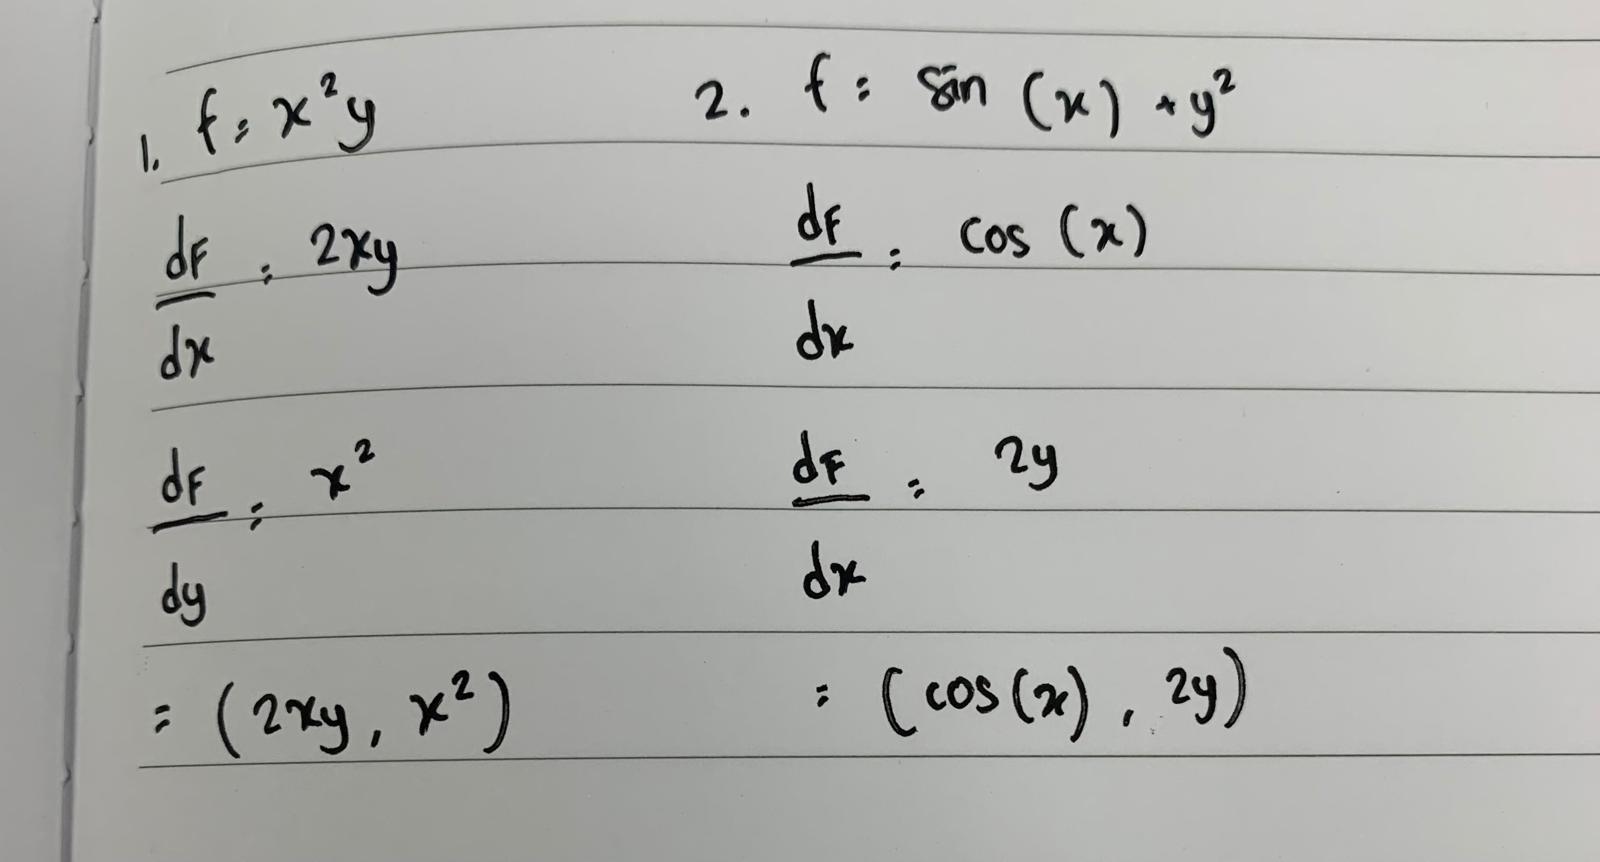 1. f = x²y
dF/dx = 2xy
dF/dy = x²
= (2xy, x²)
2. f = sin (x) + y²
dF/dx = cos (x)
dF/dx = 2y
= (cos(x), 2y)